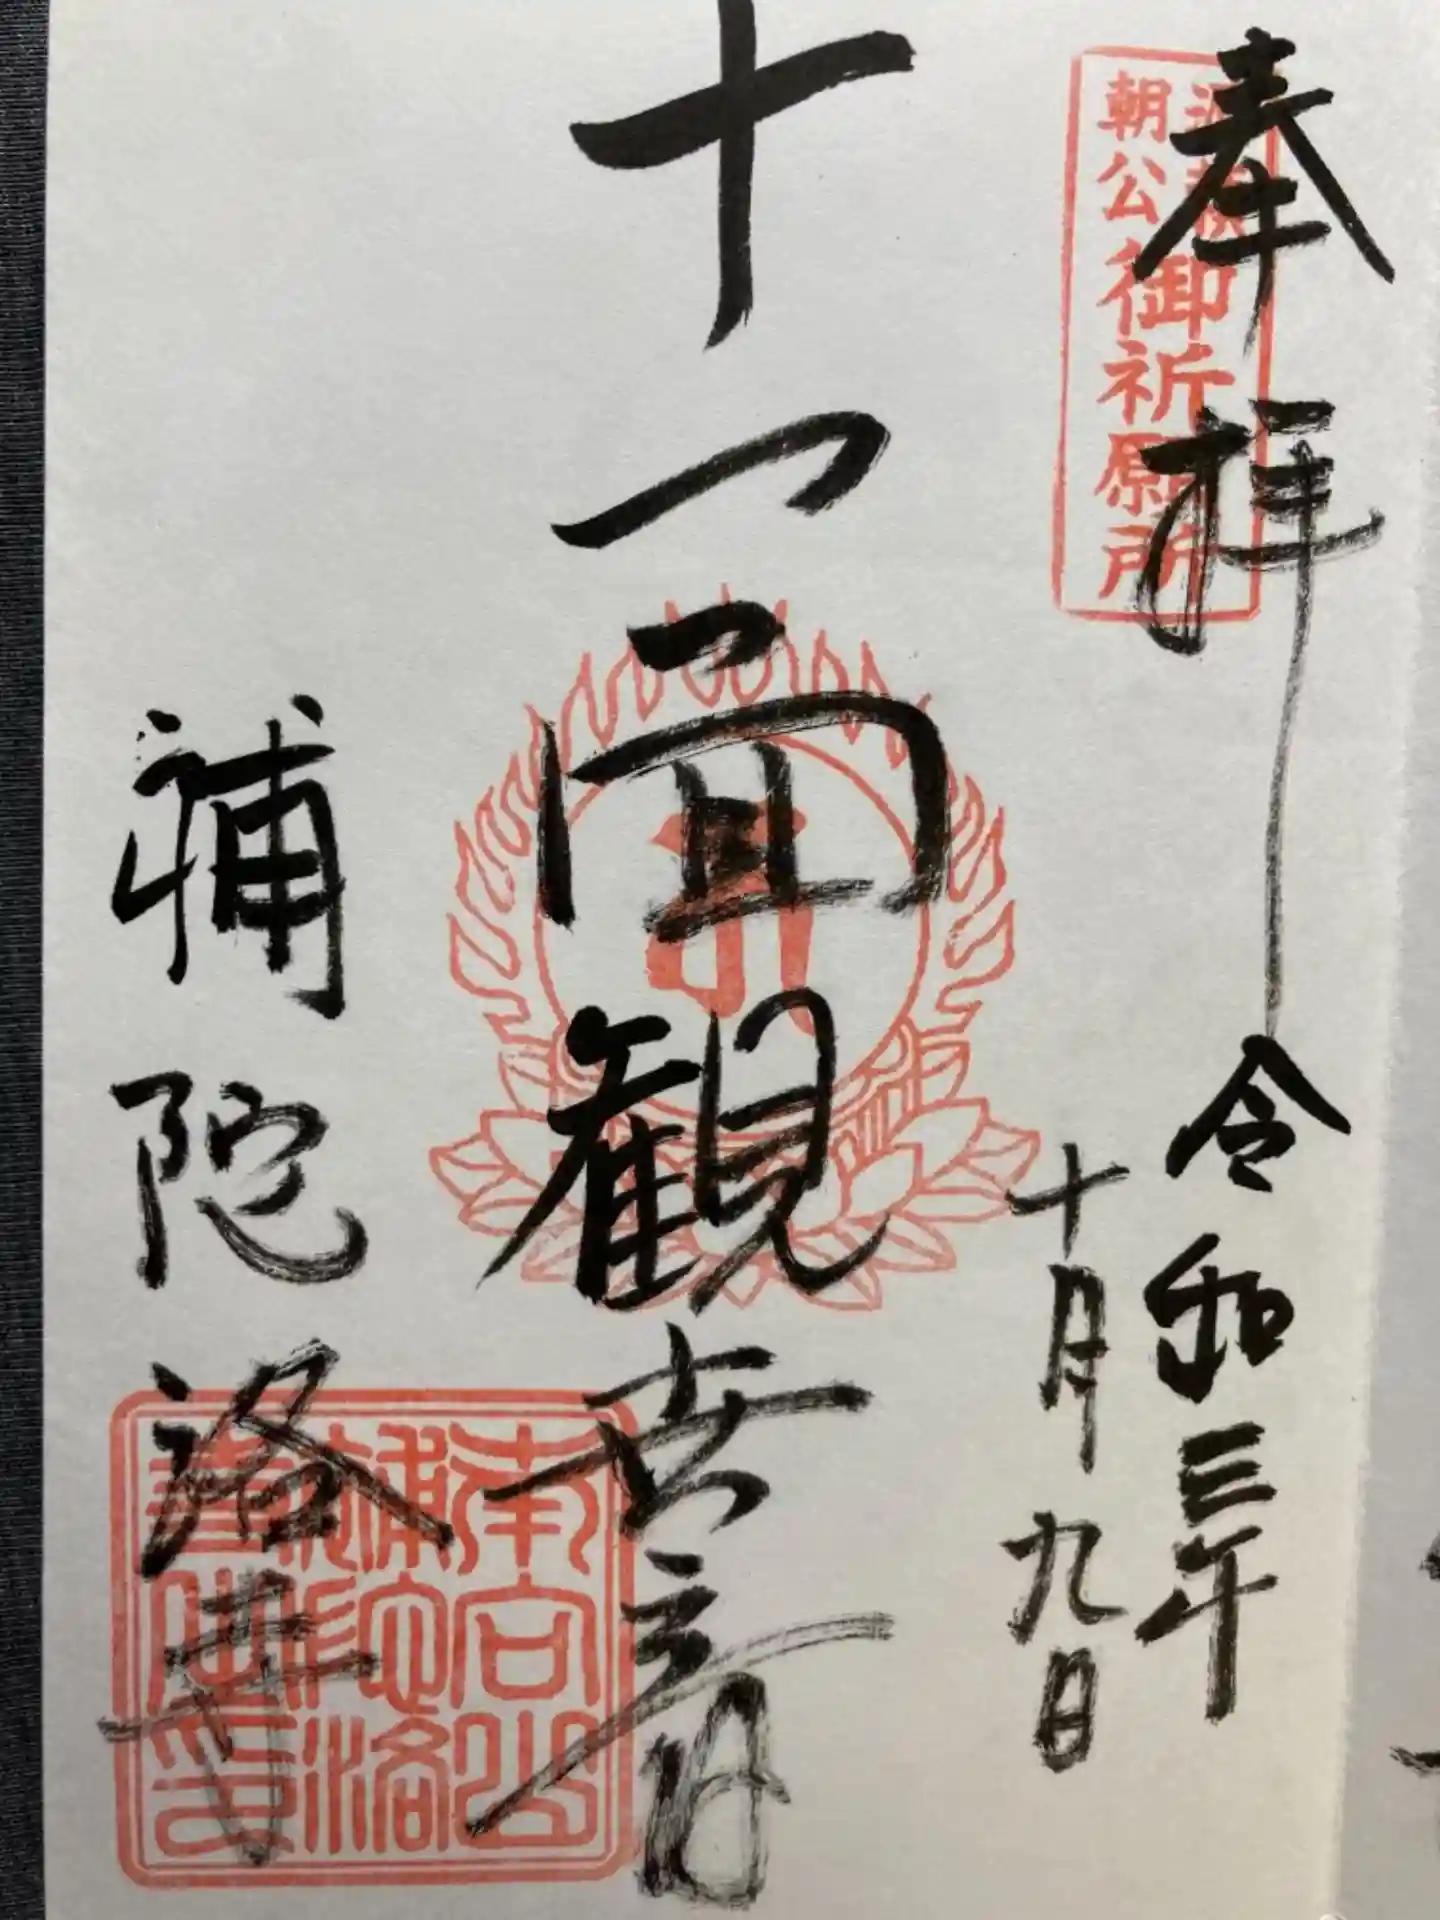 奉拝
源頼
朝公
御祈願所
令和三年
十月九日
十一面観世音
補陀洛寺
南向山
補陀洛